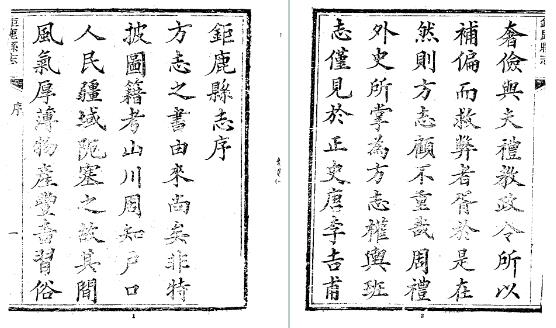 鉅鹿縣志序
方志之書由來尚矣非特
披圖籍考山川周知戶口
人民疆域阨塞之故其間
風氣厚薄物產豐嗇習俗
鉅鹿縣志 序 一
1
奢儉與夫禮教政令所以
補偏而救弊者胥於是在
然則方志顧不重哉周禮
外史所掌為方志權輿班
志僅見於正史唐李吉甫
2